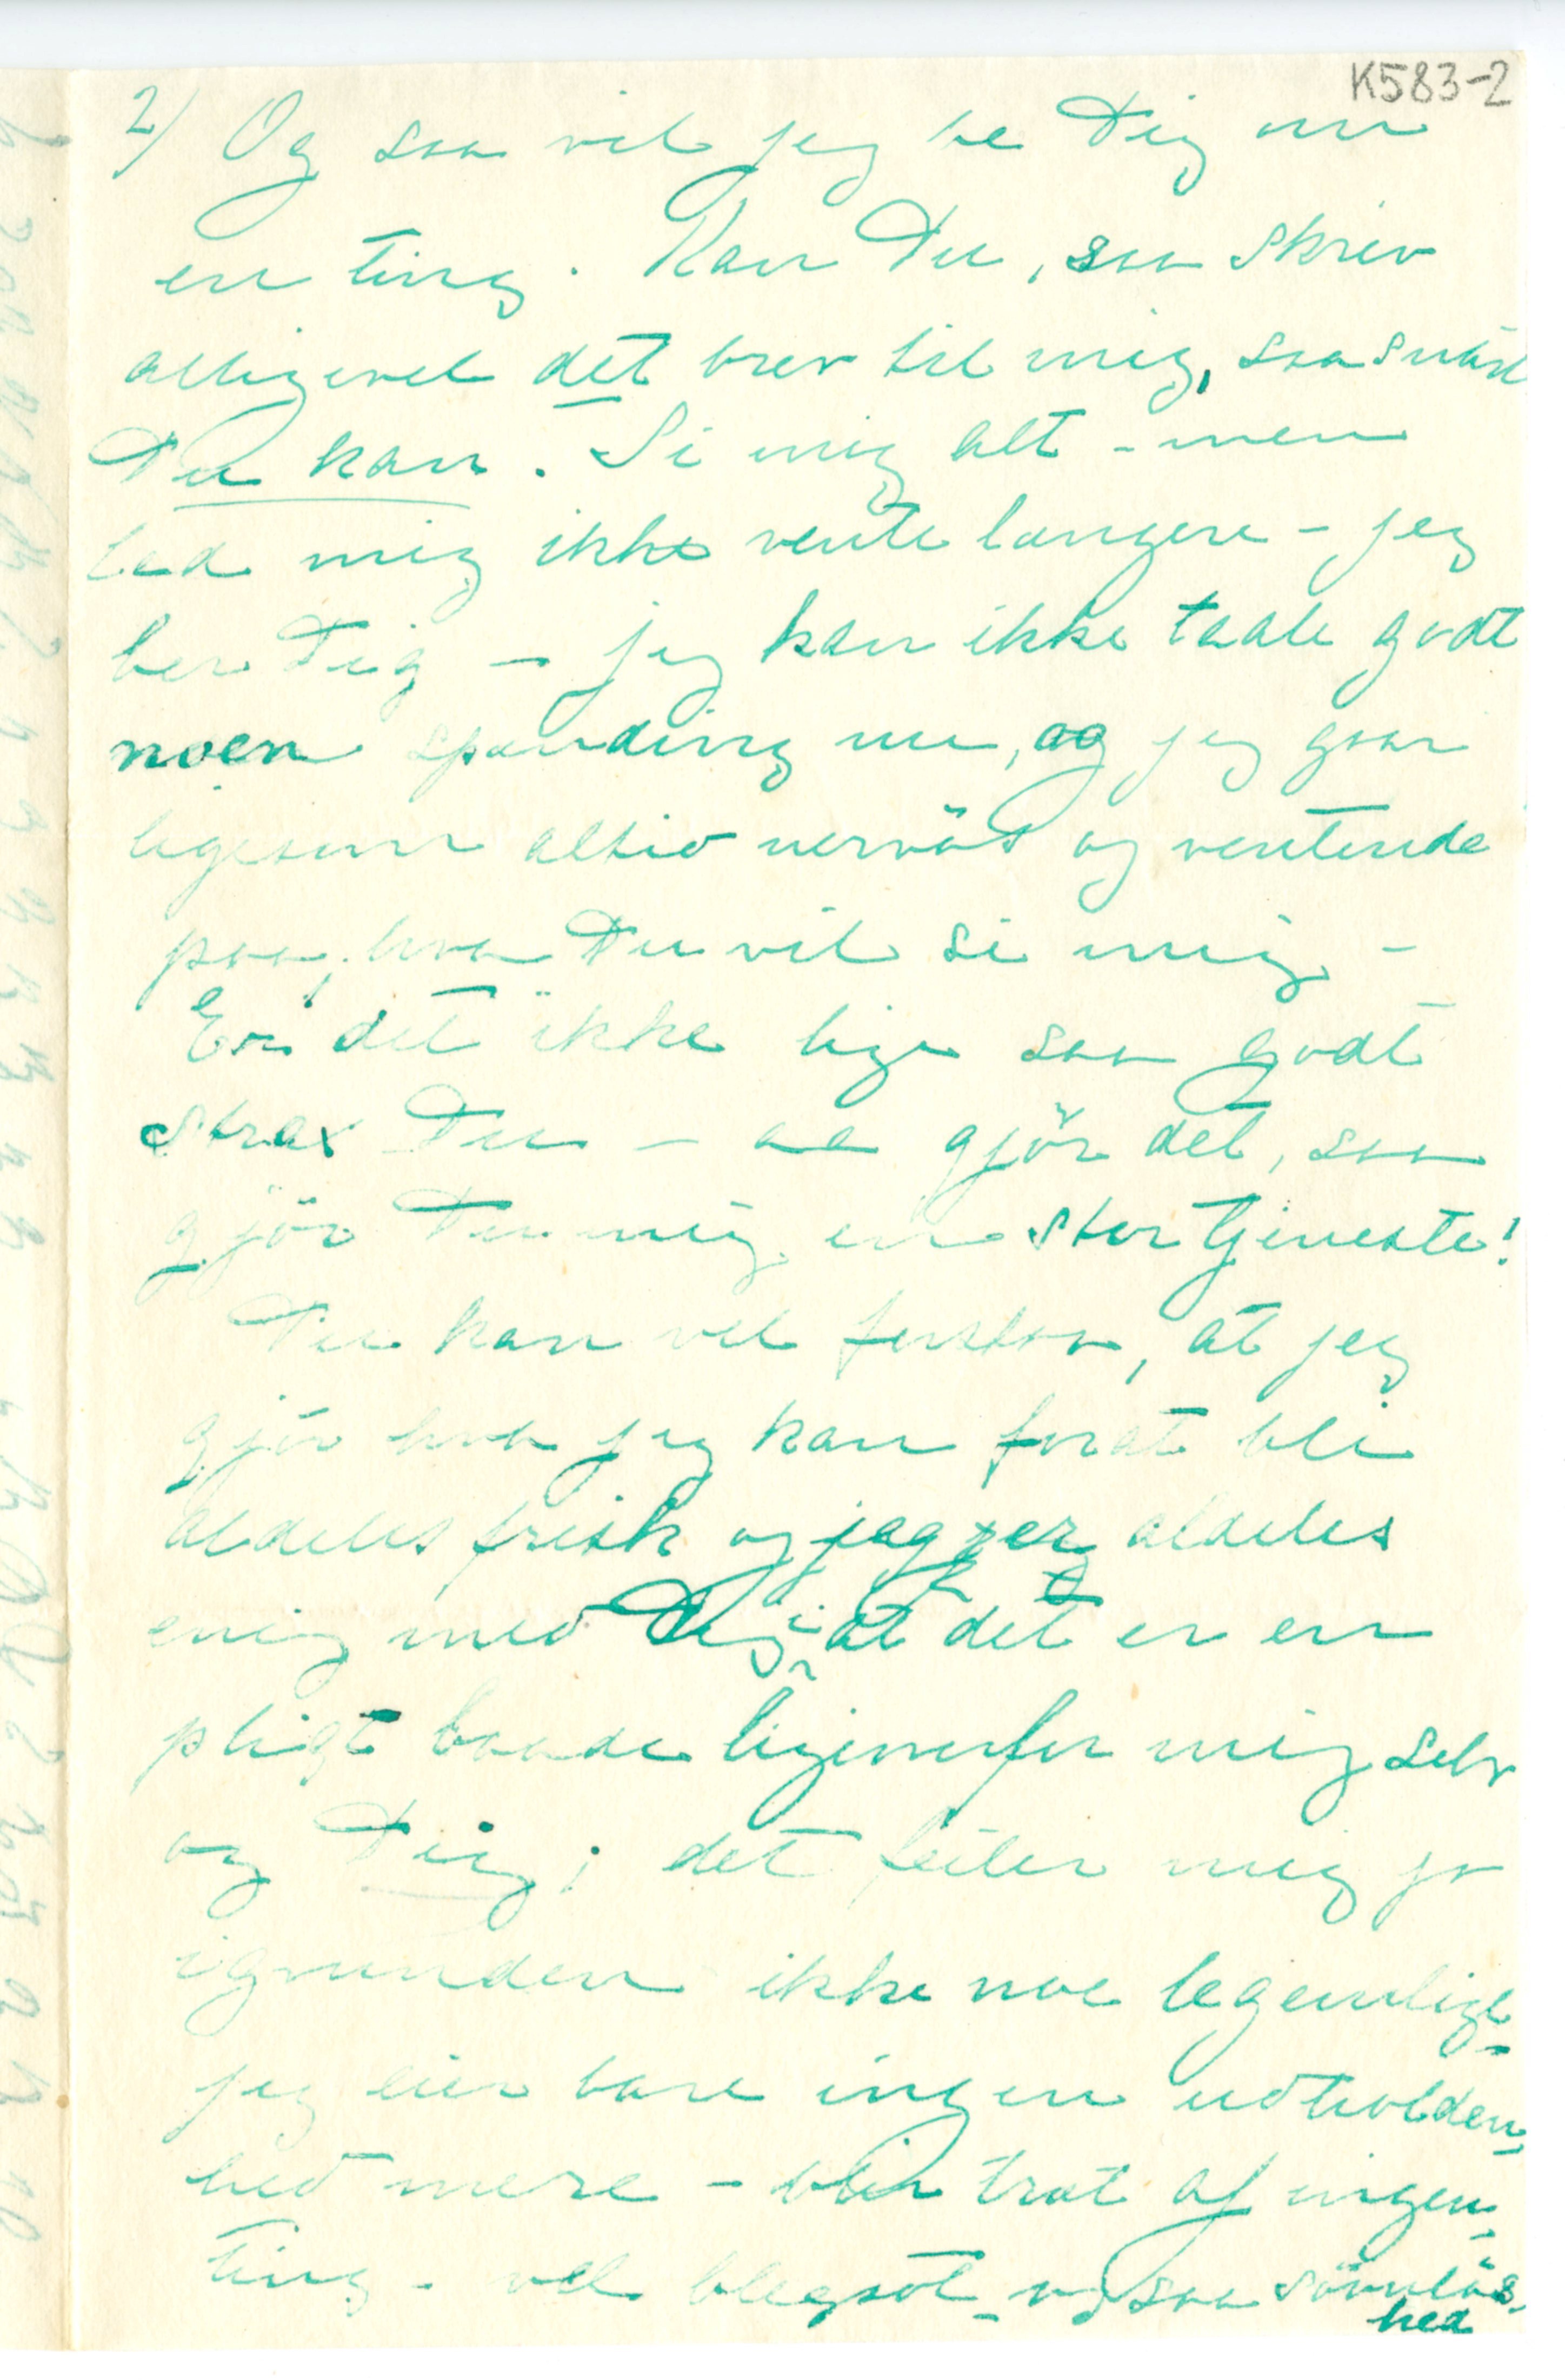 K583-2
2/ Og saa vil jeg be Dig om
en ting. Kan Du, saa skriv
alligevel det brev til mig, saa snart
Du kan. Si mig alt - men
lad mig ikke vente længere - jeg
ber Dig - jeg kan ikke taale godt
noen spænding nu, og jeg gaar
ligesom altid nervös og ventende
paa, hva Du vil si mig -
Er det ikke lige saa godt
strax Du - aa gjör det, saa
gjör Du mig en stor tjeneste!
Du kan vel forstaa, at jeg
gjör hva jeg kan forat bli
aldeles frisk og jeg er aldeles
enig med Dig i at det er en
pligt baade ligeoverfor mig selv
og Dig; det feiler mig jo
igrunden ikke noe legemligt -
jeg eier bare ingen udholden-
hed mere - blir træt af ingen-
ting - vel blegsot - og saa sövnlös-
hed